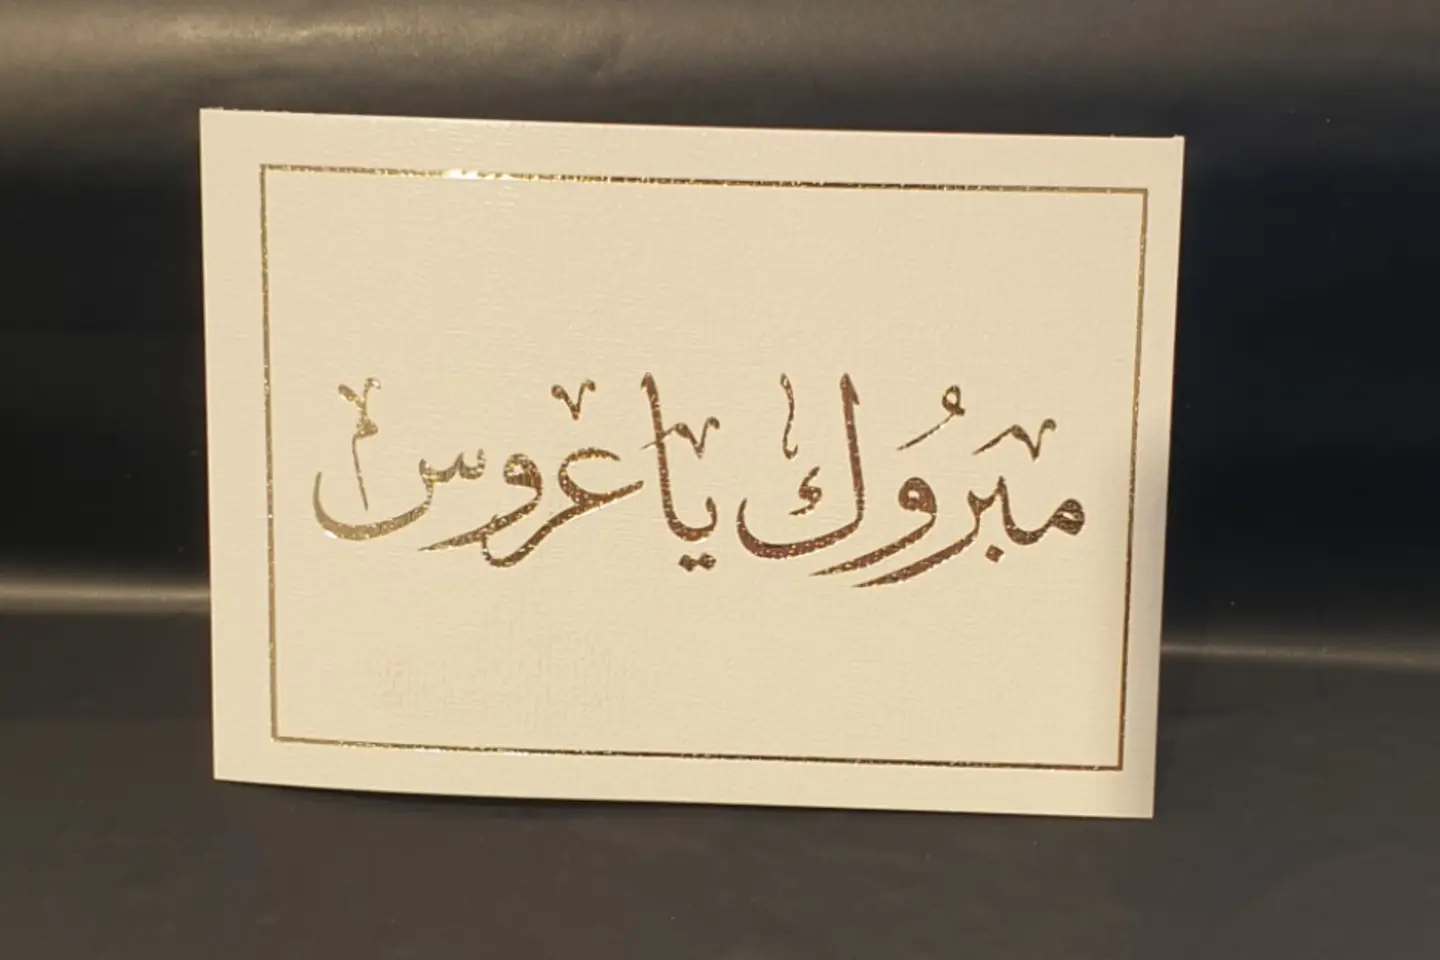 مبرُوك يا عروس